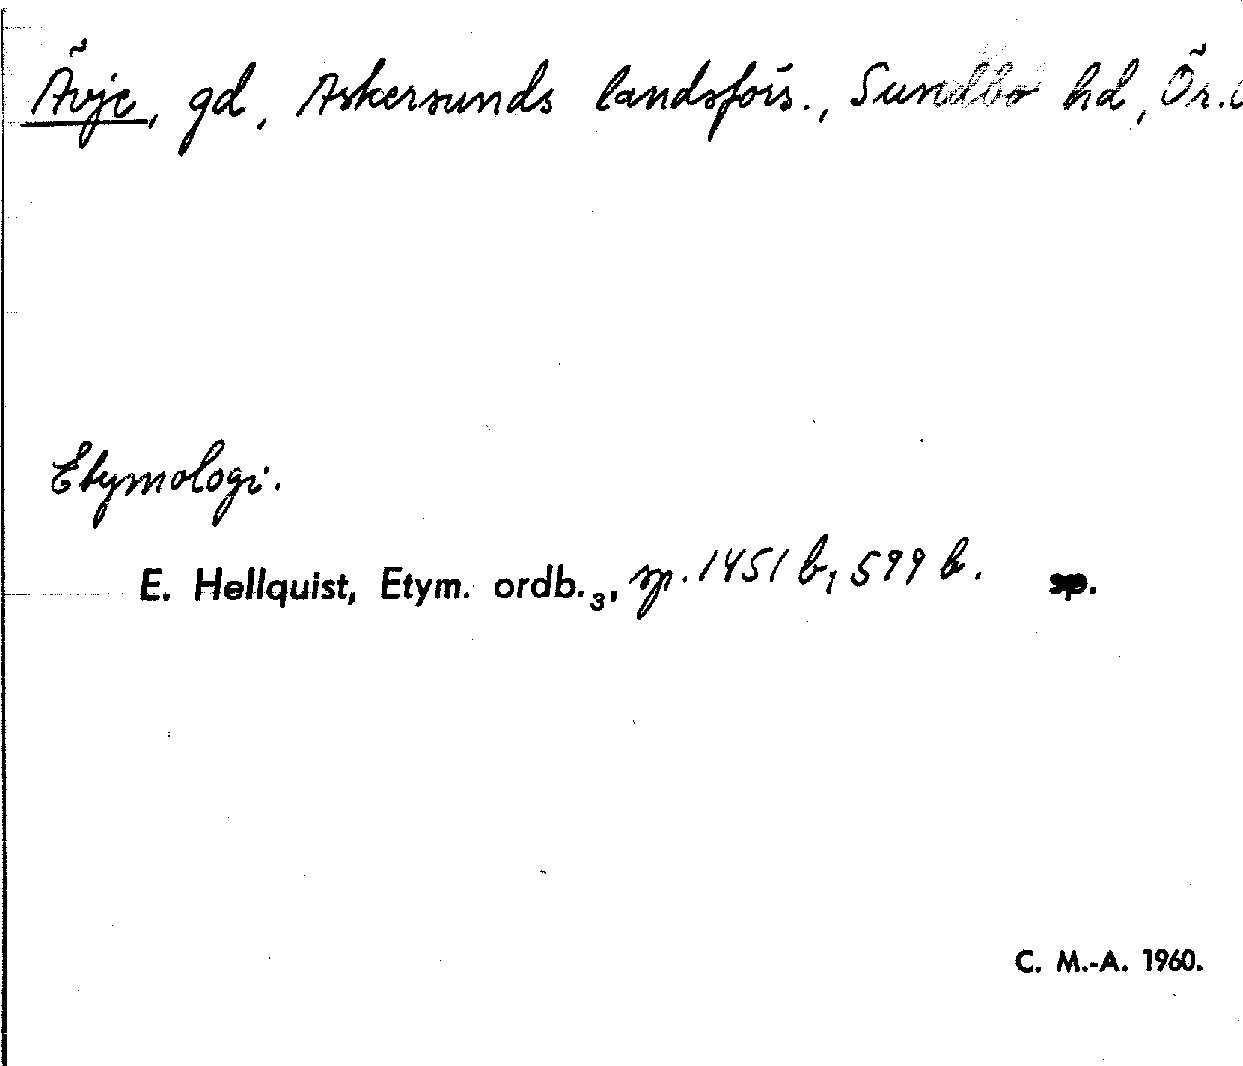 Ävje, gd, Askersunds landsförs., Sundbo hd, Ör.
Etymologi.
E. Hellquist, Etym. ordb.3, sp. 1451 b, 599 b. sp.
C. M.-A. 1960.